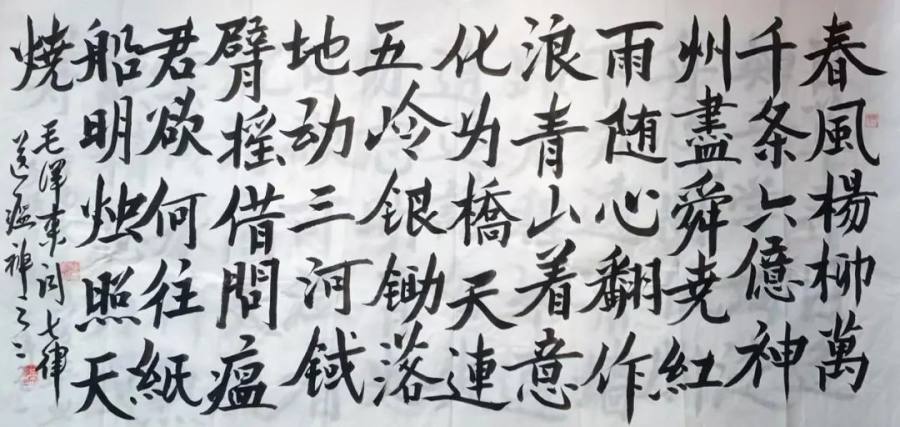 春風楊柳萬
千条六億神
州盡舜尭紅
雨随心翻作
浪青山着意
化为橋天連
五岭银锄落
地动三河鉄
臂摇借問瘟
君欲何往紙
船明烛照天
燒
毛澤東词七律
送瘟神之二